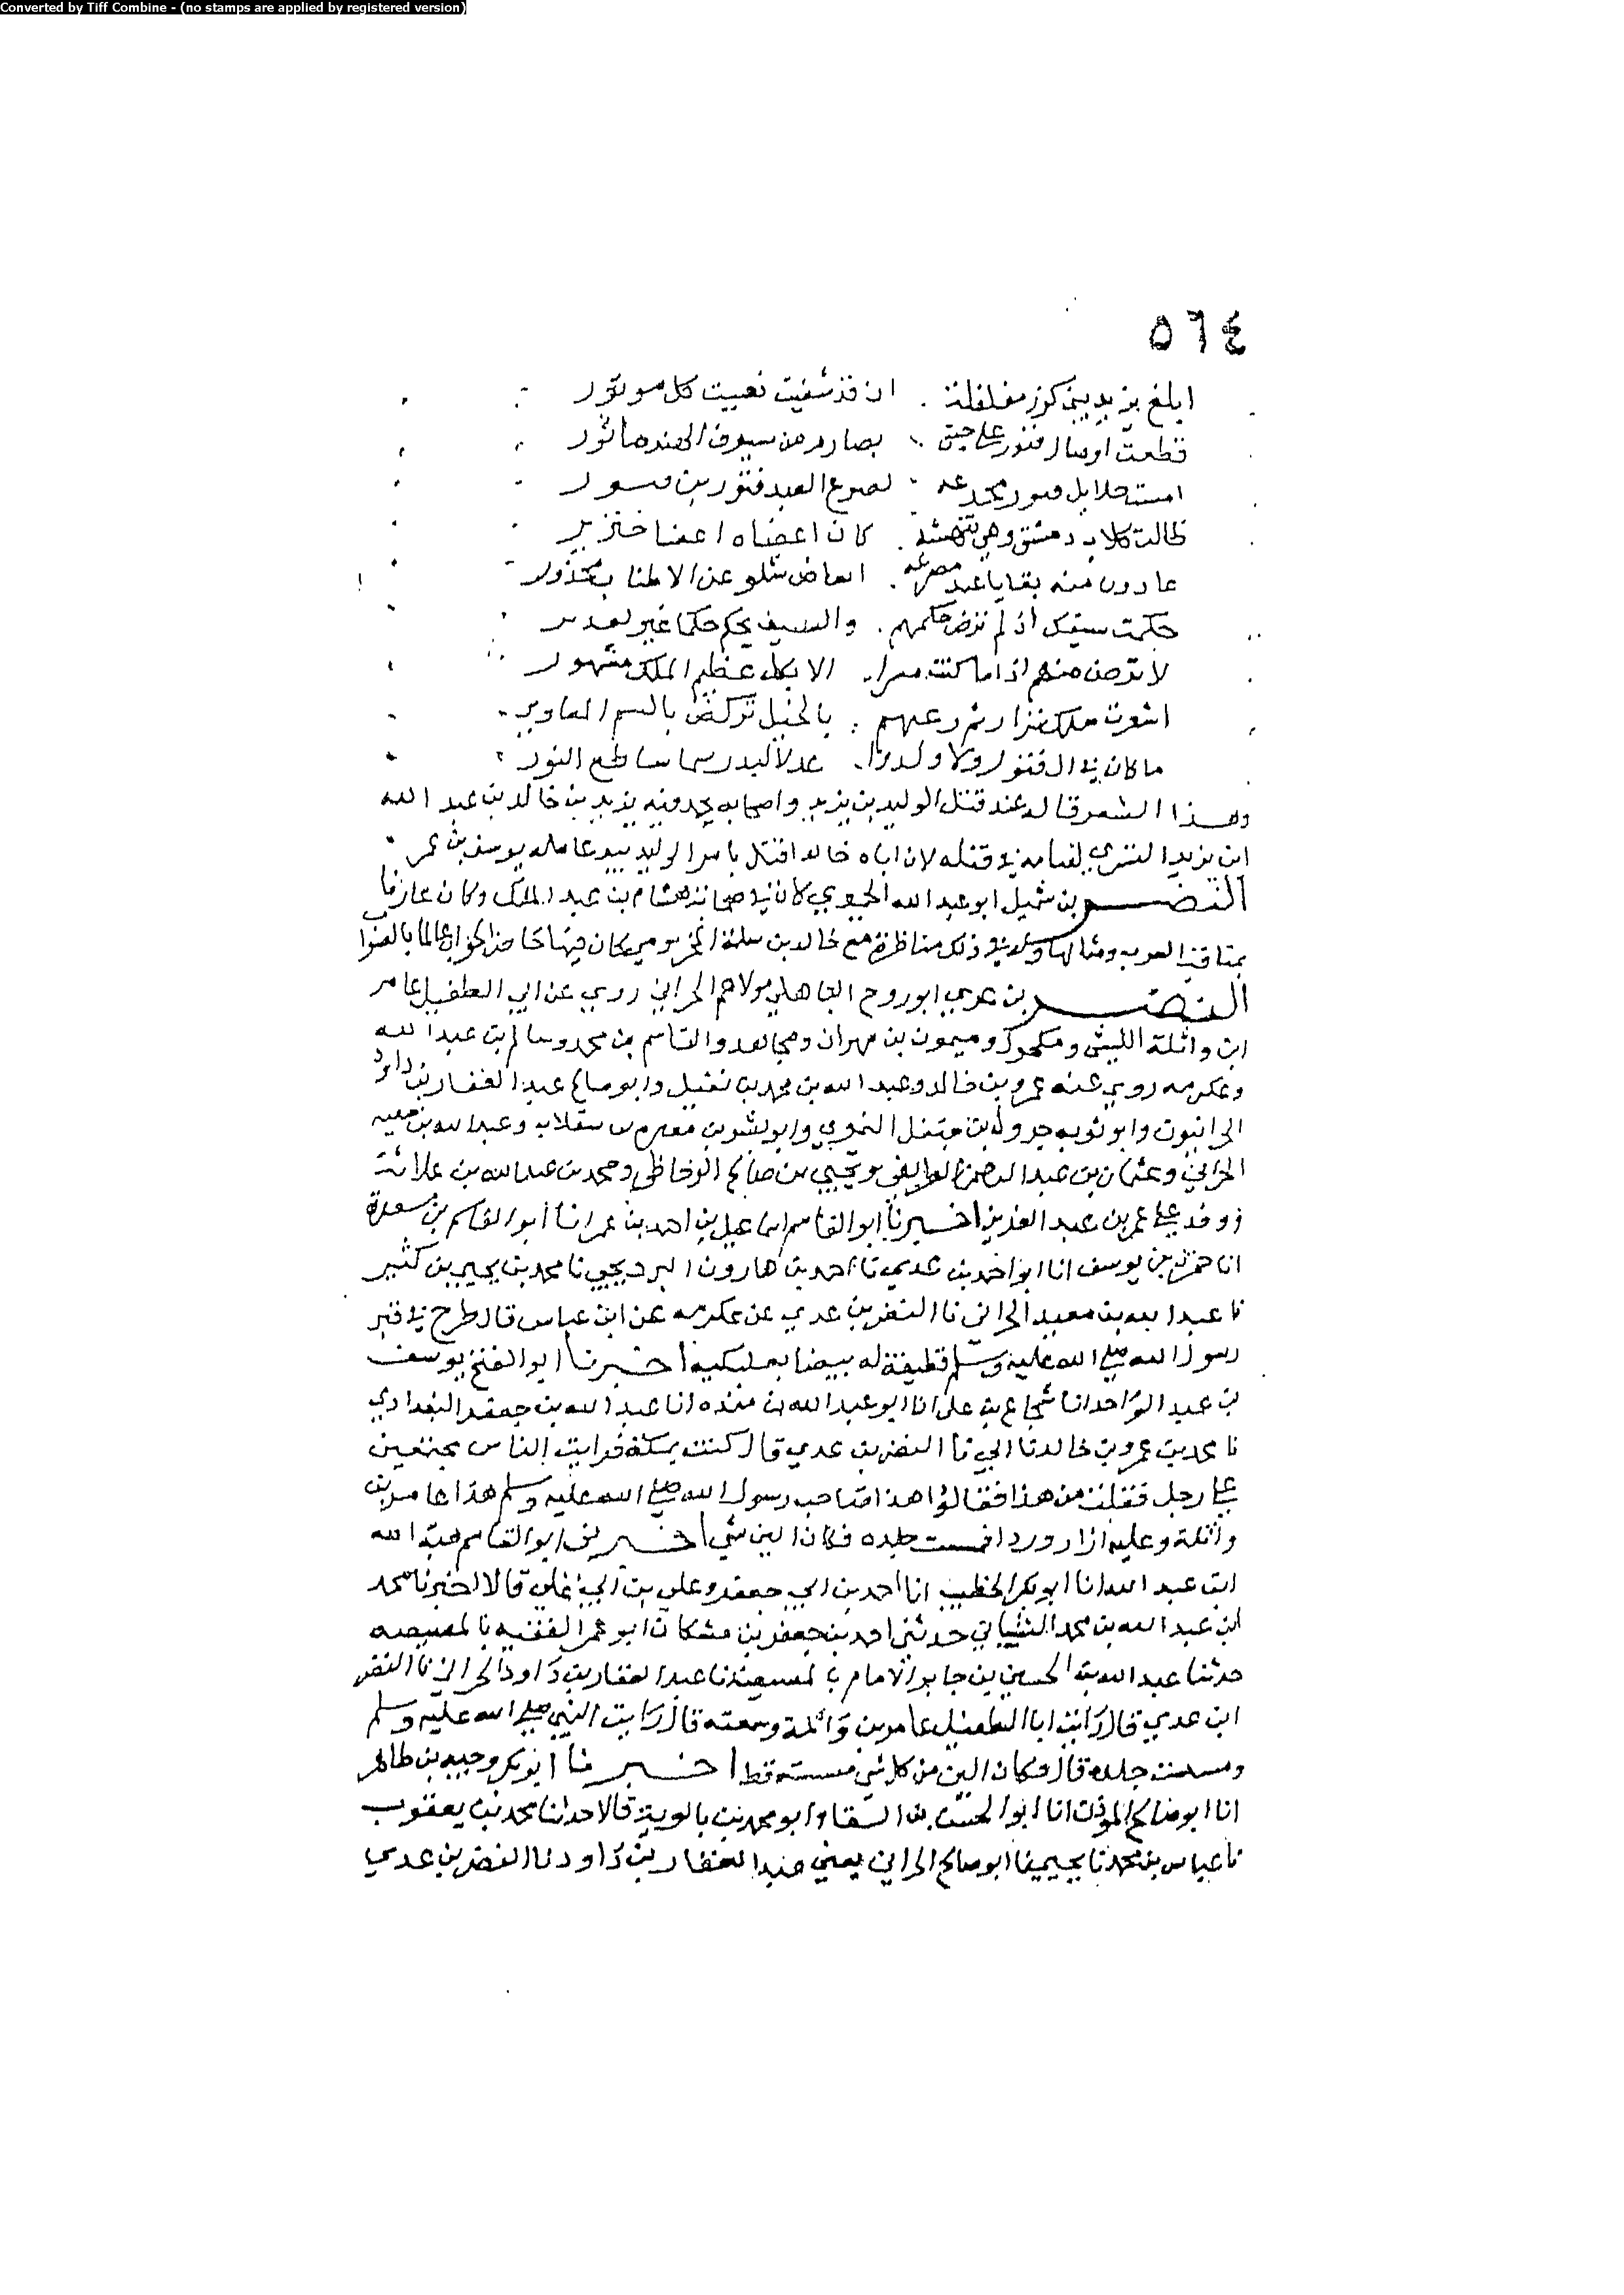 Converted by Tiff Combine - (no stamps are applied by registered version)
٥٦٤
ابلغ يزيد بني كرز مغلغلة . ان قد شفيت نفسك كل موتور
قطعت اوصال قنور على حنق . بصارم من سيوف الهند ماثور
امست حلايل قنور مجدعه . لمصرع العبد قنور بن قنور
ظلت كلاب دمشق وهي تنهشه . كان اعضاه اعضا خنزير
غادرن منه بقايا عند مصرعه . انقاض شلو على الاطناب مجرور
حكمت سيفك اذ لم ترض حكمهم . والسيف يحكم حكما غير تعذير
لا ترض منهم اذا ما كنت . الا بكل عظيم الملك مشهور
اسعرت ملك نزار ثم رعتهم . بالخيل تركض بالشم المغاوير
ما كان في ال قنور ولا ولدوا . عدلا لبدر سما ساطع النور
وهذا الشعر قاله عند قتل الوليد بن يزيد واصحابه يمدح فيه يزيد بن خالد بن عبد الله
ابن يزيد القسري لقيامه في قتله لان اباه خالدا قتل بامر الوليد بيد عامله يوسف بن عمر
النضـــر بن شميل ابو عبد الله الحميري كان في صحابة هشام بن عبد الملك وكان عارفا
بمناقب العرب ومثالبها وله في ذلك مناظرة مع خالد بن سلمة المخزومي كان فيها حاضر الجواب عالما بالصواب
النضـــر بن عربي ابو روح الباهلي مولاهم الحراني روي عن ابي الطفيل عامر
ابن واثلة الليثي ومكحول وميمون بن مهران ومجاهد والقاسم بن محمد وسالم بن عبد الله
وعكرمه روي عنه عمرو بن خالد وعبد الله بن محمد بن نفيل وابو صالح عبد الغفار بن داود
الحرانيون وابو توبه جرول بن جنفل النميري وابو بشر بن سقلاب وعبد الله بن معيه
الحراني وعثمان بن عبد الرحمن الطرايفي ويحيي بن صالح الوحاظي ومحمد بن عبد الله بن علاثة
ووفد علي عمر بن عبد العزيز اخـــبرنا ابو القاسم اسماعيل بن احمد بن عمر انا ابو القاسم بن مسعدة
انا حمزة بن يوسف انا ابو احمد بن عدي نا احمد بن هارون البرديجي نا محمد بن يحيي بن كثير
نا عبد الله بن معيد الحراني نا النضر بن عدي عن عكرمه عن ابن عباس قال طرح في قبر
رسول الله صلي الله عليه وسلم قطيفة له بيضا بعلبكية اخـــبرنا ابو الفتح يوسف
بن عبد الواحد انا شجاع بن علي انا ابو عبد الله بن منده انا عبد الله بن جعفر البغدادي
نا محمد بن عمرو بن خالد نا ابي نا النضر بن عدي قال كنت بمكة فرايت الناس مجتمعين
علي رجل فقلت من هذا فقالوا هذا صاحب رسول الله صلي الله عليه وسلم هذا عامر بن
واثلة وعليه ازار وردا فمست جلده فكان الين شي اخـــبرني ابو القاسم هبة الله
ابن عبد الله انا ابو بكر الخطيب انا احمد بن ابي جعفر وعلي بن ابي علي قالا اخبرنا محمد
ابن عبد الله بن محمد الشيباني حدثني احمد بن جعفر بن مشكان ابو عمر الفقيه بالمصيصه
حدثنا عبد الله بن الحسين بن جابر الامام بالمصيصة نا عبد الغفار بن داود الحراني نا النضر
ابن عدي قال رايت ابا الطفيل عامر بن واثلة وسمعته قال رايت النبي صلي الله عليه وسلم
ومسست جلده قال فكان الين من كل شي مسسته قط اخـــبرنا ابو بكر وجيه بن طاهر
انا ابو صالح المؤذن انا ابو الحسن بن السقا وابو محمد بن بالويه قالا حدثنا محمد بن يعقوب
نا عباس بن محمد نا يحيي نا ابو صالح الحراني يعني عبد الغفار بن داود نا النضر بن عدي